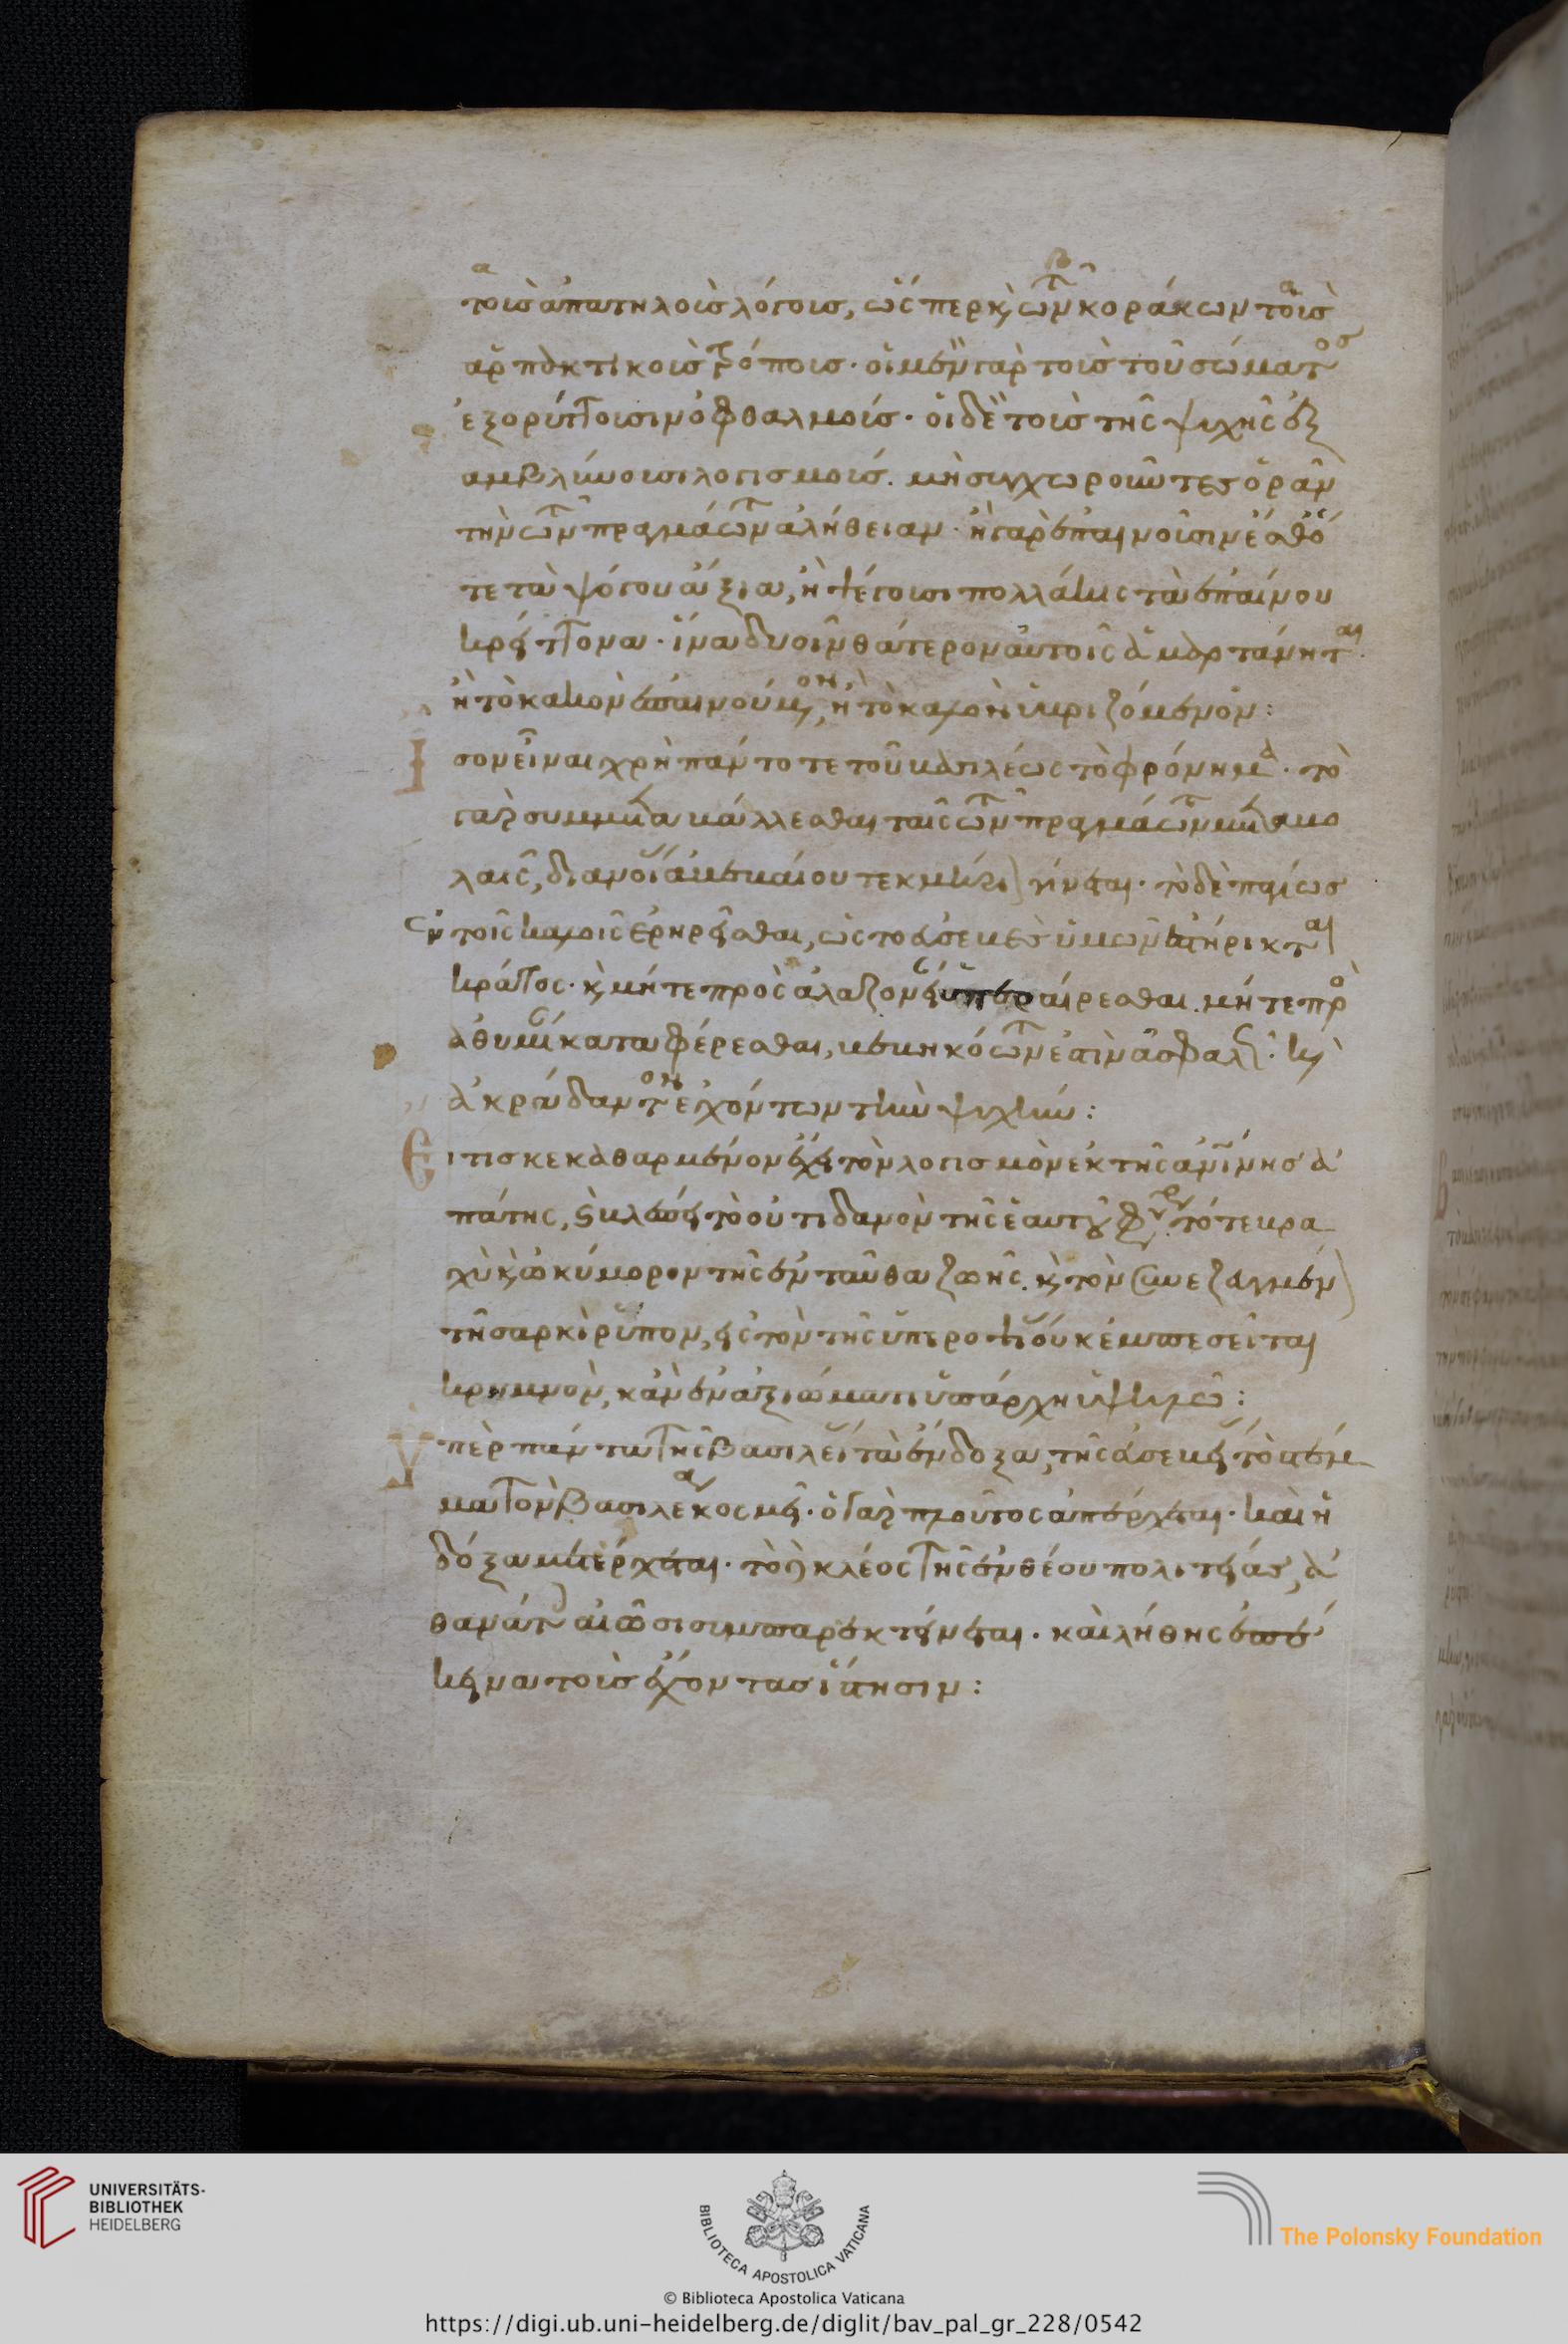 τοὺς ἀπατηλοὺς λόγους, ὥσπερ καὶ τῶν κοράκων τοὺς
ἁρπακτικοὺς τρόπους· οἱ μὲν γὰρ τοὺς τοῦ σώματος
ἐξορύττουσιν ὀφθαλμούς· οἱ δὲ τοὺς τῆς ψυχῆς ἐξ
αμβλύνουσι λογισμούς. μὴ συγχωροῦντες ὁρᾶν
τὴν τῶν πραγμάτων ἀλήθειαν· ἢ γὰρ ἐπαινοῦσιν ἔσθό
τε τὰ ψόγου ἄξια, ἢ ψέγουσι πολλάκις τὰ ἐπαίνου
κρείττονα· ἵνα δυοῖν θάτερον αὐτοῖς ἁμαρτάνηται·
ἢ τὸ κακὸν ἐπαινούμενον, ἢ τὸ καλὸν ὑβριζόμενον:
Ἴσον εἶναι χρὴ πάντοτε τοῦ βασιλέως τὸ φρόνημα· τὸ
γὰρ συμμεταβάλλεσθαι ταῖς τῶν πραγμάτων μεταβο
λαῖς, διανοίας ἀβεβαίου τεκμήριον γίνεται· τὸ δὲ παγίως
ἐν τοῖς καλοῖς ἐρηρεῖσθαι, ὡς τὸ εὐσεβὲς ὑμῶν ἐστήρικται
κράτος· καὶ μήτε πρὸς ἀλαζονείαν ὑπεραίρεσθαι. μήτε πρὸς
ἀθυμίαν καταφέρεσθαι, βεβηκότων ἐστὶν ἀσφαλῶς· καὶ
ἀκράδαντον ἐχόντων τὴν ψυχήν:
Εἴ τις κεκαθαρμένον ἔχει τὸν λογισμὸν ἐκ τῆς ἀνθρωπίνης ἀ
πάτης, καὶ βλέπει τὸ οὐτιδανὸν τῆς ἑαυτοῦ φύσεως. τό τε βρα
χὺ καὶ ὠκύμορον τῆς ἐνταῦθα ζωῆς. καὶ τὸν συνεζευγμένον
τῇ σαρκὶ ῥύπον, εἰς τὸν τῆς ὑπεροψίας οὐκ ἐμπεσεῖται
κρημνὸν, κἂν ἐν ἀξιώματι ὑπάρχη ὑψηλῶ:
Ὑπὲρ πάντα τῆς βασιλείας τὰ ἔνδοξα, τῆς εὐσεβείας τὸ στέμ
μα τὸν βασιλέα κοσμεῖ· ὁ γὰρ πλοῦτος ἀπέρχεται· καὶ ἡ
δόξα μετέρχεται· τὸ δὲ κλέος τῆς ἐνθέου πολιτείας, ἀ
θανάτοις αἰῶσι συμπαρεκτείνεται· καὶ λήθης ἐπέ
κεινα τοὺς ἔχοντας ἵστησιν:
UNIVERSITÄTS-
BIBLIOTHEK
HEIDELBERG
BIBLIOTECA APOSTOLICA VATICANA
The Polonsky Foundation
© Biblioteca Apostolica Vaticana
https://digi.ub.uni-heidelberg.de/diglit/bav_pal_gr_228/0542